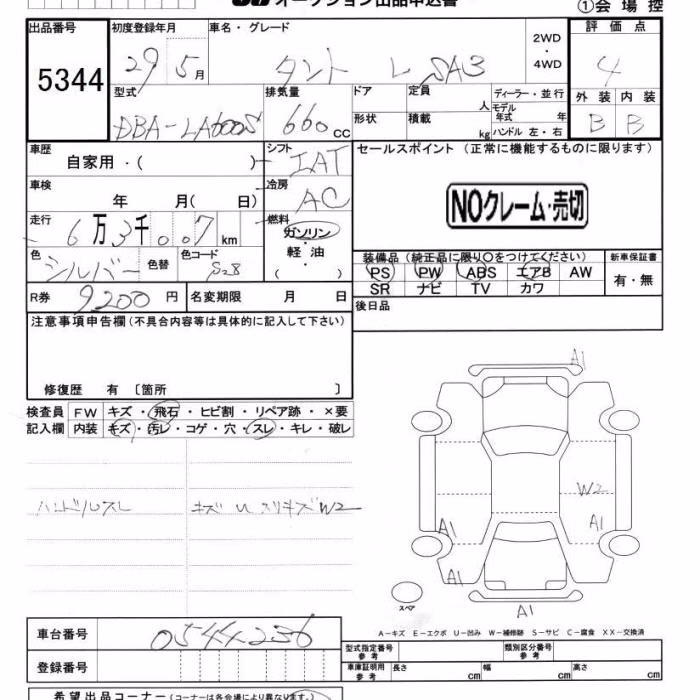 オークション出品申込書 ①会場控
出品番号 初度登録年月 車名・グレード 2WD・4WD 評価点
5344 29 5月 タント L SAⅢ 4
型式 排気量 ドア 定員 人 ディーラー・並行 外装 内装
DBA-LA600S 660 CC 形状 積載 kg モデル年式 年 ハンドル 左・右 B B
車歴 自家用・( ) シフト IAT セールスポイント(正常に機能するものに限ります)
車検 年 月( 日) 冷房 AC NOクレーム・売切
走行 6万3千007km 燃料 ガソリン・軽油・( )
色 シルバー 色替 色コード S28
装備品(純正品に限り○をつけてください) 新車保証書
PS PW ABS エアB AW 有・無
SR ナビ TV カワ
R券 9200円 名変期限 月 日 後日品
注意事項申告欄(不具合内容等は具体的に記入して下さい)
修復歴 有〔箇所 〕
検査員 FW キズ・飛石・ヒビ割・リペア跡・×要
記入欄 内装 キズ・汚レ・コゲ・穴・スレ・キレ・破レ
ハンドルスレ キズ U スリキズW2
A1
W2
A1 A1
A1
A1
スペア
A-キズ E-エクボ U-凹み W-補修跡 S-サビ C-腐食 XX-交換済
車台番号 0544236
登録番号
型式指定番号 参考 類別区分番号 参考
車庫証明用 参考 長さ cm 幅 cm 高さ cm
希望出品コーナー(コーナーは各会場により異なります。)